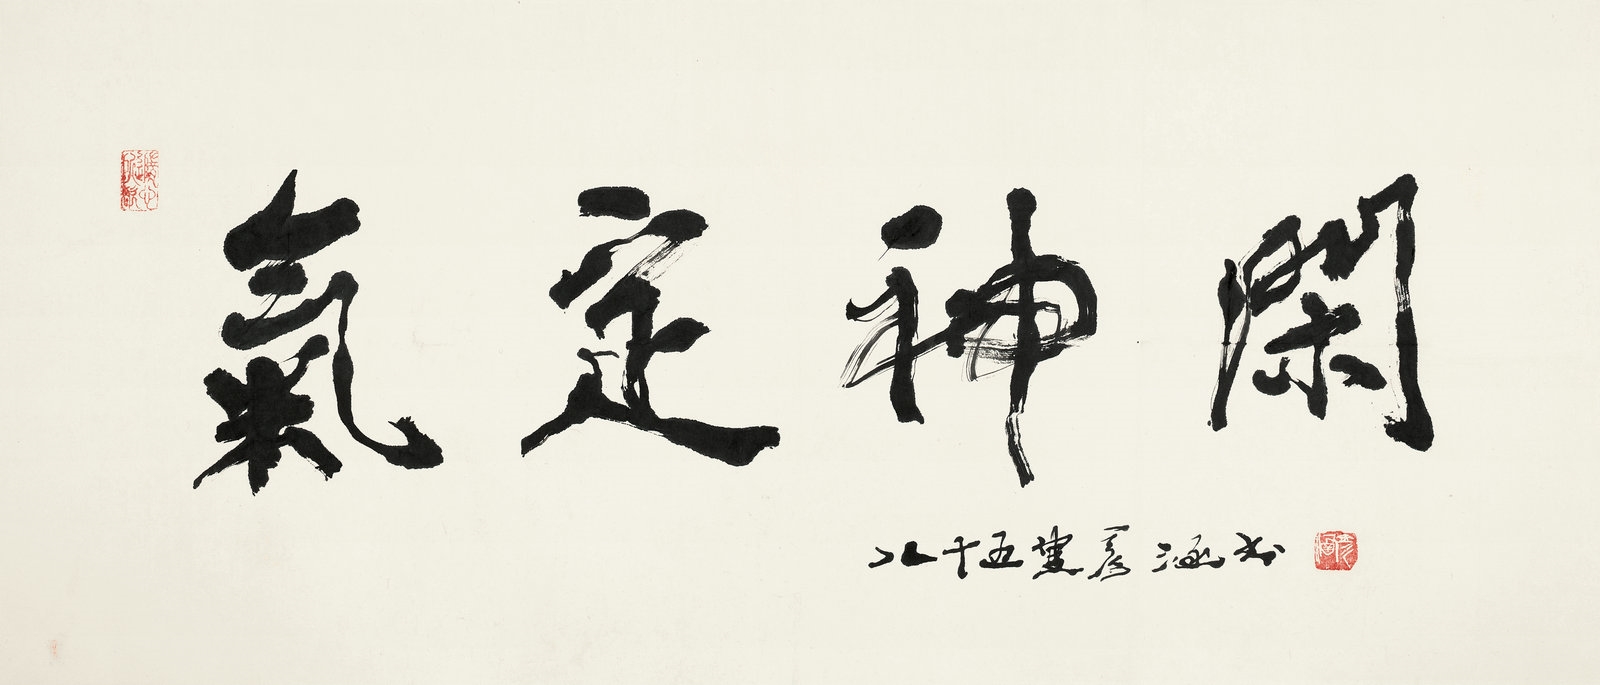 氣定神閑
八十五叟彦涵书